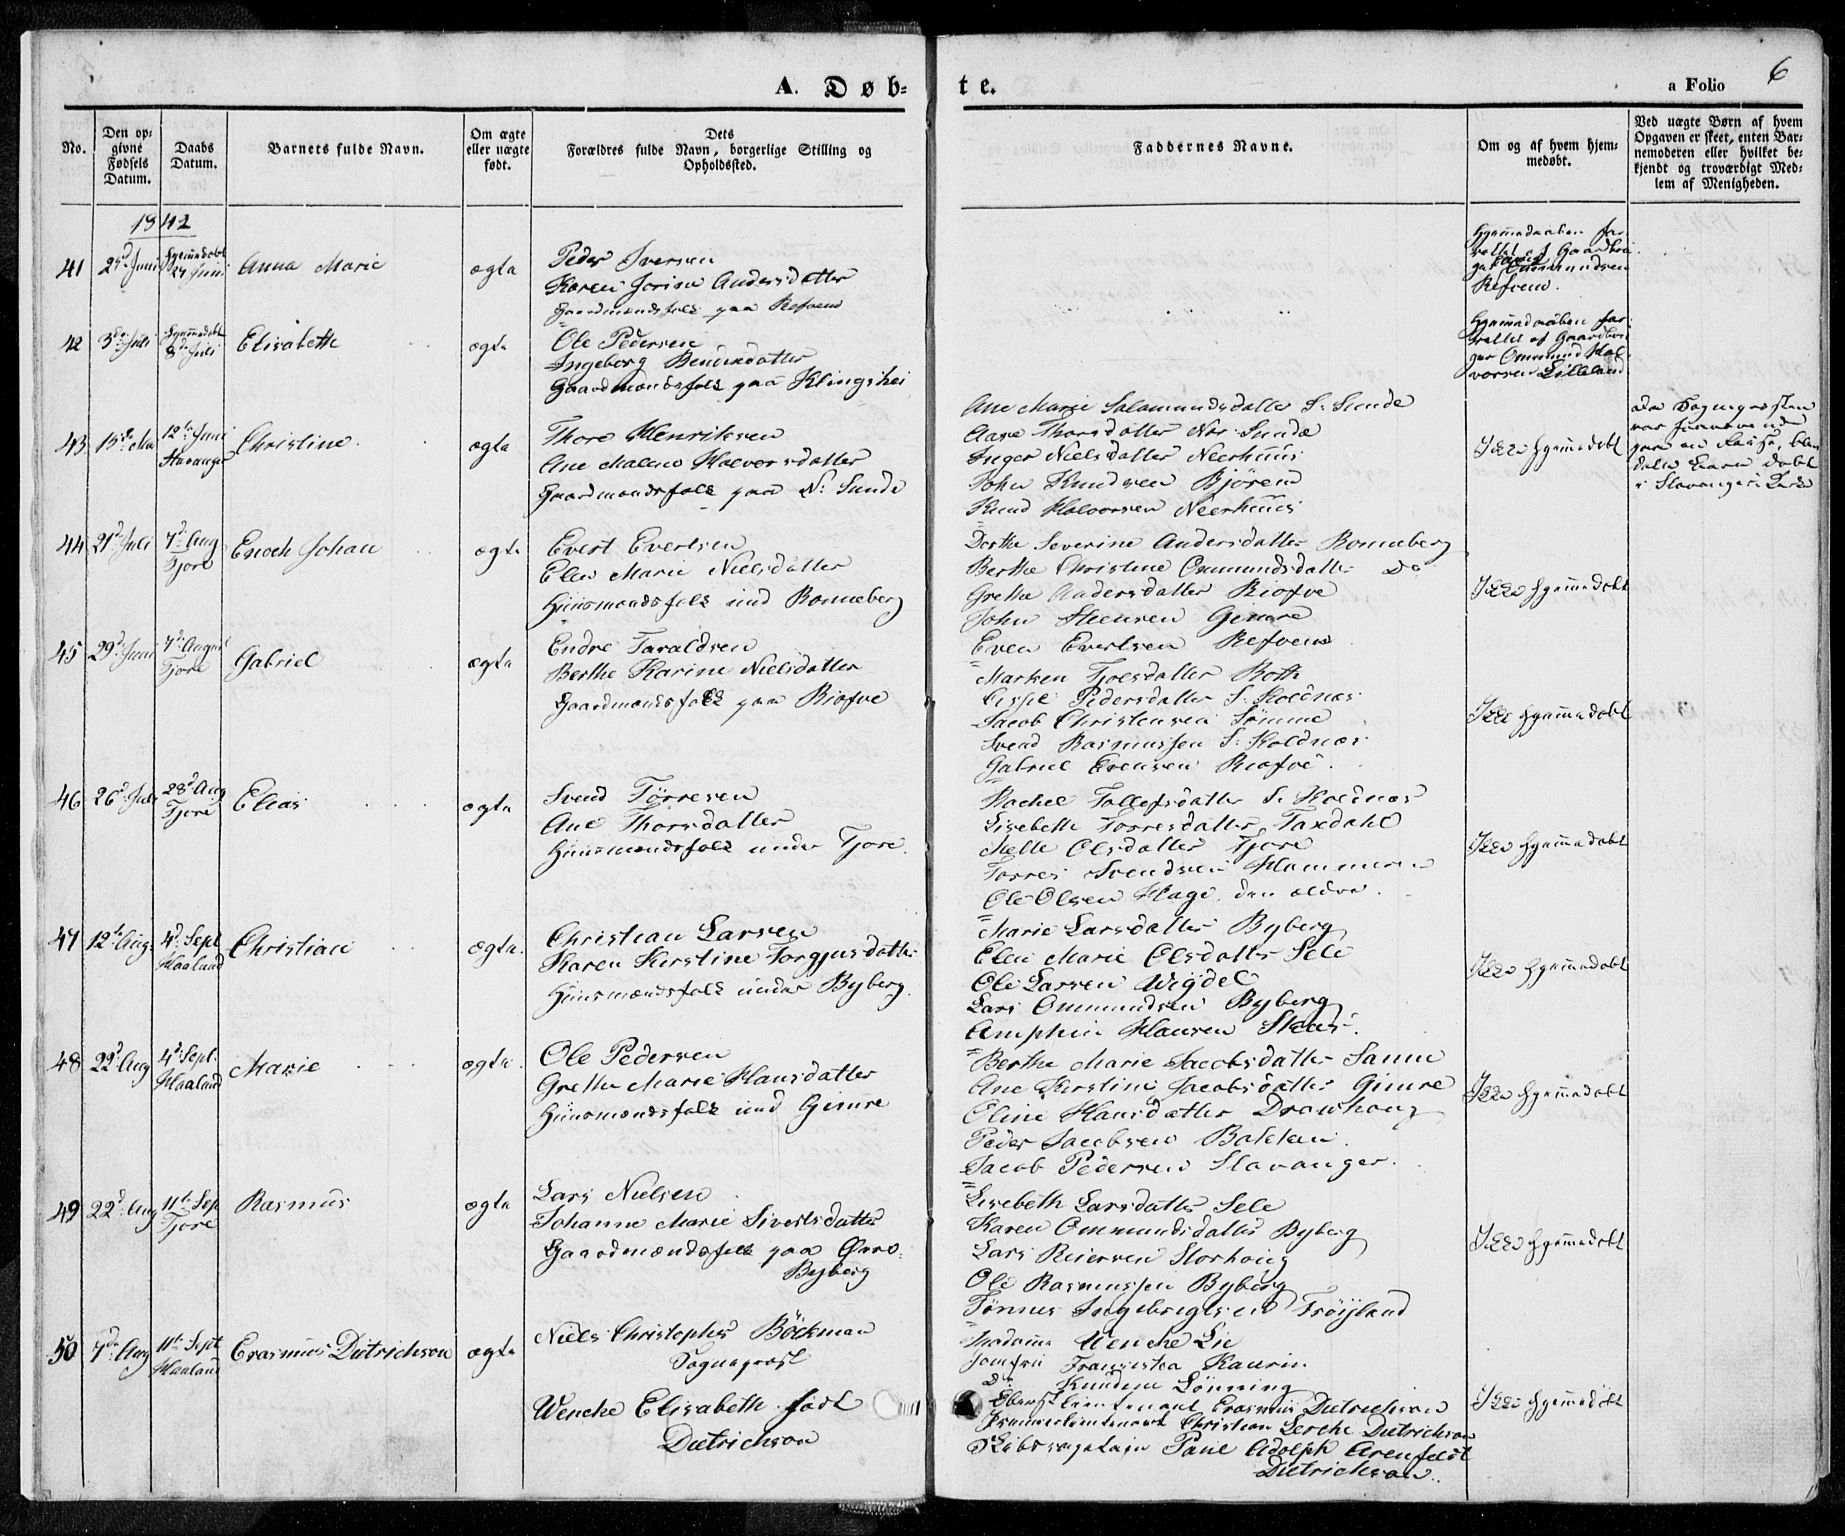 A. Døb-
te.
a Folio
6
No.
Den op-
givne
Fødsels
Datum.
Daabs
Datum.
Barnets fulde Navn.
Om ægte
eller uægte
født.
Dets
Forældres fulde Navn, borgerlige Stilling og
Opholdssted.
Faddernes Navne.
Om og af hvem hjem-
medøbt.
Ved uægte Børn af hvem
Opgaven er skeet, enten Bar-
nemoderen eller hvilket be-
kjendt og troværdigt Med-
lem af Menigheden.
1842
41
Juni
Hjemmedøbt
Juni
Anna Marie
ægte
Peder Iversen
Karen Jorine Andersdatter
Gaardmandsfolk paa Refvem
Hjemmedaaben for-
rettet af Gaardbru-
ger Ommundsen
Refvem.
42
3de Juli
Hjemmedøbt
8de Juli
Elisabeth
ægte
Ole Pedersen
Ingeborg
Gaardmandsfolk paa Klingshei
Hjemmedaaben for-
rettet af Gaardbru-
ger Ommund Hal-
vorsen Lilleland
43
15de Mai
12te Juni
Stavanger
Christine
ægte
Thore Henriksen
Ane Malene Halvorsdatter
Gaardmandsfolk paa N: Sunde
Ane Marie Salamundsdatter S: Sunde
Aase Thorsdatter Nor Sunde
Inger Nielsdatter Neerhuus
John Knudsen Bjørem
Knud Halvorsen Neerhuus
Ikke hjemmedøbt
da Sognepræsten
var fraværende
paa en Reise, blev
dette Barn døbt
i Stavanger Kirke
44
21d Juli
7d Aug
Tjore
Enoch Johan
ægte
Evert Evertsen
Elen Marie Nielsdatter
Huusmandsfolk und Ronneberg
Dorthe Severine Andersdatter Ronneberg
Berthe Christine Ommundsdatter Do
Grethe Andersdatter Riofve
John Steensen Gimre
Even Evertsen Refvem
Ikke hjemmedøbt
45
29d Juni
7d August
Tjore
Gabriel
ægte
Endre Taraldsen
Berthe Karine Nielsdatter
Gaardmandsfolk paa Riofve
Marken Tjoesdatter Roth
Sissel Pedersdatter S: Koldnæs
Jacob Christensen Sømme
Svend Rasmussen S: Koldnæs
Gabriel Evensen Riofve
Ikke hjemmedøbt
46
26d Juli
28d Aug
Tjore
Elias
ægte
Svend Tørresen
Ane Thorsdatter
Huusmandsfolk under Tjore
Rachel Tollefsdatter S. Koldnæs
Lisebeth Torresdatter Taxdahl
Mette Olsdatter Tjore
Torres Svendsen Hammeren
Ole Olsen Hage den ældre
Ikke hjemmedøbt
47
12te Aug
4d Sept
Haaland
Christian
ægte
Christian Larsen
Karen Kirstine Torgjusdatter
Huusmændsfolk under Byberg
Marie Larsdatter Byberg
Elen Marie Olsdatter Sele
Ole Larsen Wigdel
Lars Ommundsen Byberg
Amphin Hansen Skas
Ikke hjemmedøbt
48
22d Aug
4d Sept
Haaland
Marie
ægte
Ole Pedersen
Grethe Marie Hansdatter
Huusmandsfolk und Gimre
Berthe Marie Jacobsdatter
Ane Kirstine Jacobsdatter Gimre
Eline Hansdatter
Peder Jacobsen Bakken
Jacob Pedersen Stavanger
Ikke hjemmedøbt
49
22d Aug
11te Sep
Tjore
Rasmus
ægte
Lars Nielsen
Johanne Marie Sivertsdatter
Gaardmændsfolk paa Øvre-
Byberg
Lisebeth Larsdatter Sele
Karen Ommundsdatter Byberg
Lars Reiersen Storhoug
Ole Rasmussen Byberg
Tønnes Ingebrigtsen Frøyland
Ikke hjemmedøbt
50
7de Aug
11te Sept
Haaland
Erasmus Dietrichson
ægte
Niels Christopher Böckman
Sognepræst
Wencke Elisabeth født
Dietrichson
Madame Wenche Lie
Jomfru Francisca Kaurin
Do Knudine Lönning
Oberstlieutenant Erasmus Dietrichson
Premierlieutenant Christian Lerche Dietrichson
Skibscapitain Paul Adolph Arenfeldt
Dietrichson
Ikke hjemmedøbt